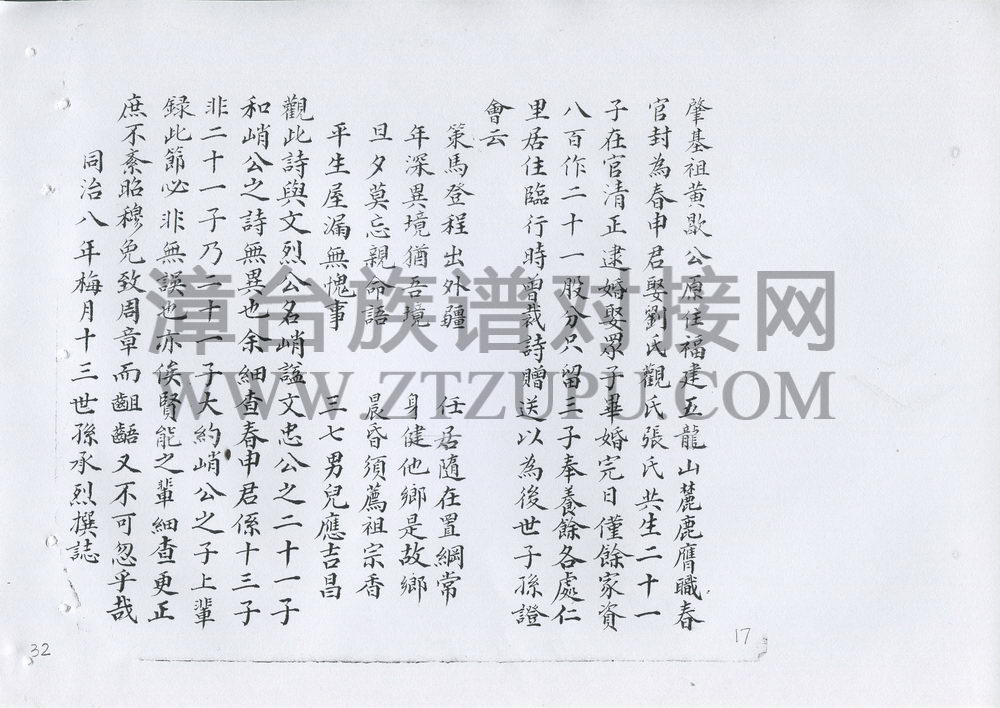 肇基祖黄歇公原住福建五龍山麓鹿膺職春
官封為春申君娶劉氏觀氏張氏共生二十一
子在官清正逮婚娶眾子畢婚完日僅餘家資
八百作二十一股分只留三子奉養餘各處仁
里居住臨行時曾裁詩贈送以為後世子孫證
會云
策馬登程出外疆 任居隨在置綱常
年深異境猶吾境 身健他鄉是故鄉
旦夕莫忘親命語 晨昏須薦祖宗香
平生屋漏無愧事 三七男兒應吉昌
觀此詩與文烈公名峭謚文忠公之二十一子
和峭公之詩無異也余細查春申君係十三子
非二十一子乃二十一子大約峭公之子上輩
録此節必非無誤也亦俟賢能之輩細查更正
庶不紊昭穆免致周章而齟齬又不可忽乎哉
同治八年梅月十三世孫承烈撰誌
17
32
漳台族谱对接网
WWW.ZTZUPU.COM